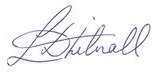 L Whitnall